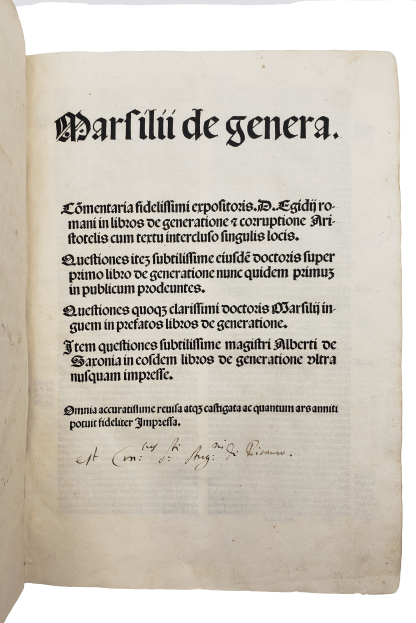 Marsilii de genera.
Cõmentaria fidelissimi expositoris.D.Egidij ro-
mani in libros de generatione ⁊ corruptione Ari-
stotelis cum textu intercluso singulis locis.
Questiones iteʒ subtilissime eiusdẽ doctoris super
primo libro de generatione nunc quidem primuʒ
in publicum prodeuntes.
Questiones quoqʒ clarissimi doctoris Marsilij in-
guem in prefatos libros de generatione.
Item questiones subtilissime magistri Alberti de
Saxonia in eosdem libros de generatione vltra
nusquam impresse.
Omnia accuratissime reuisa atqʒ castigata ac quantum ars anniti
potuit fideliter Impressa.
est